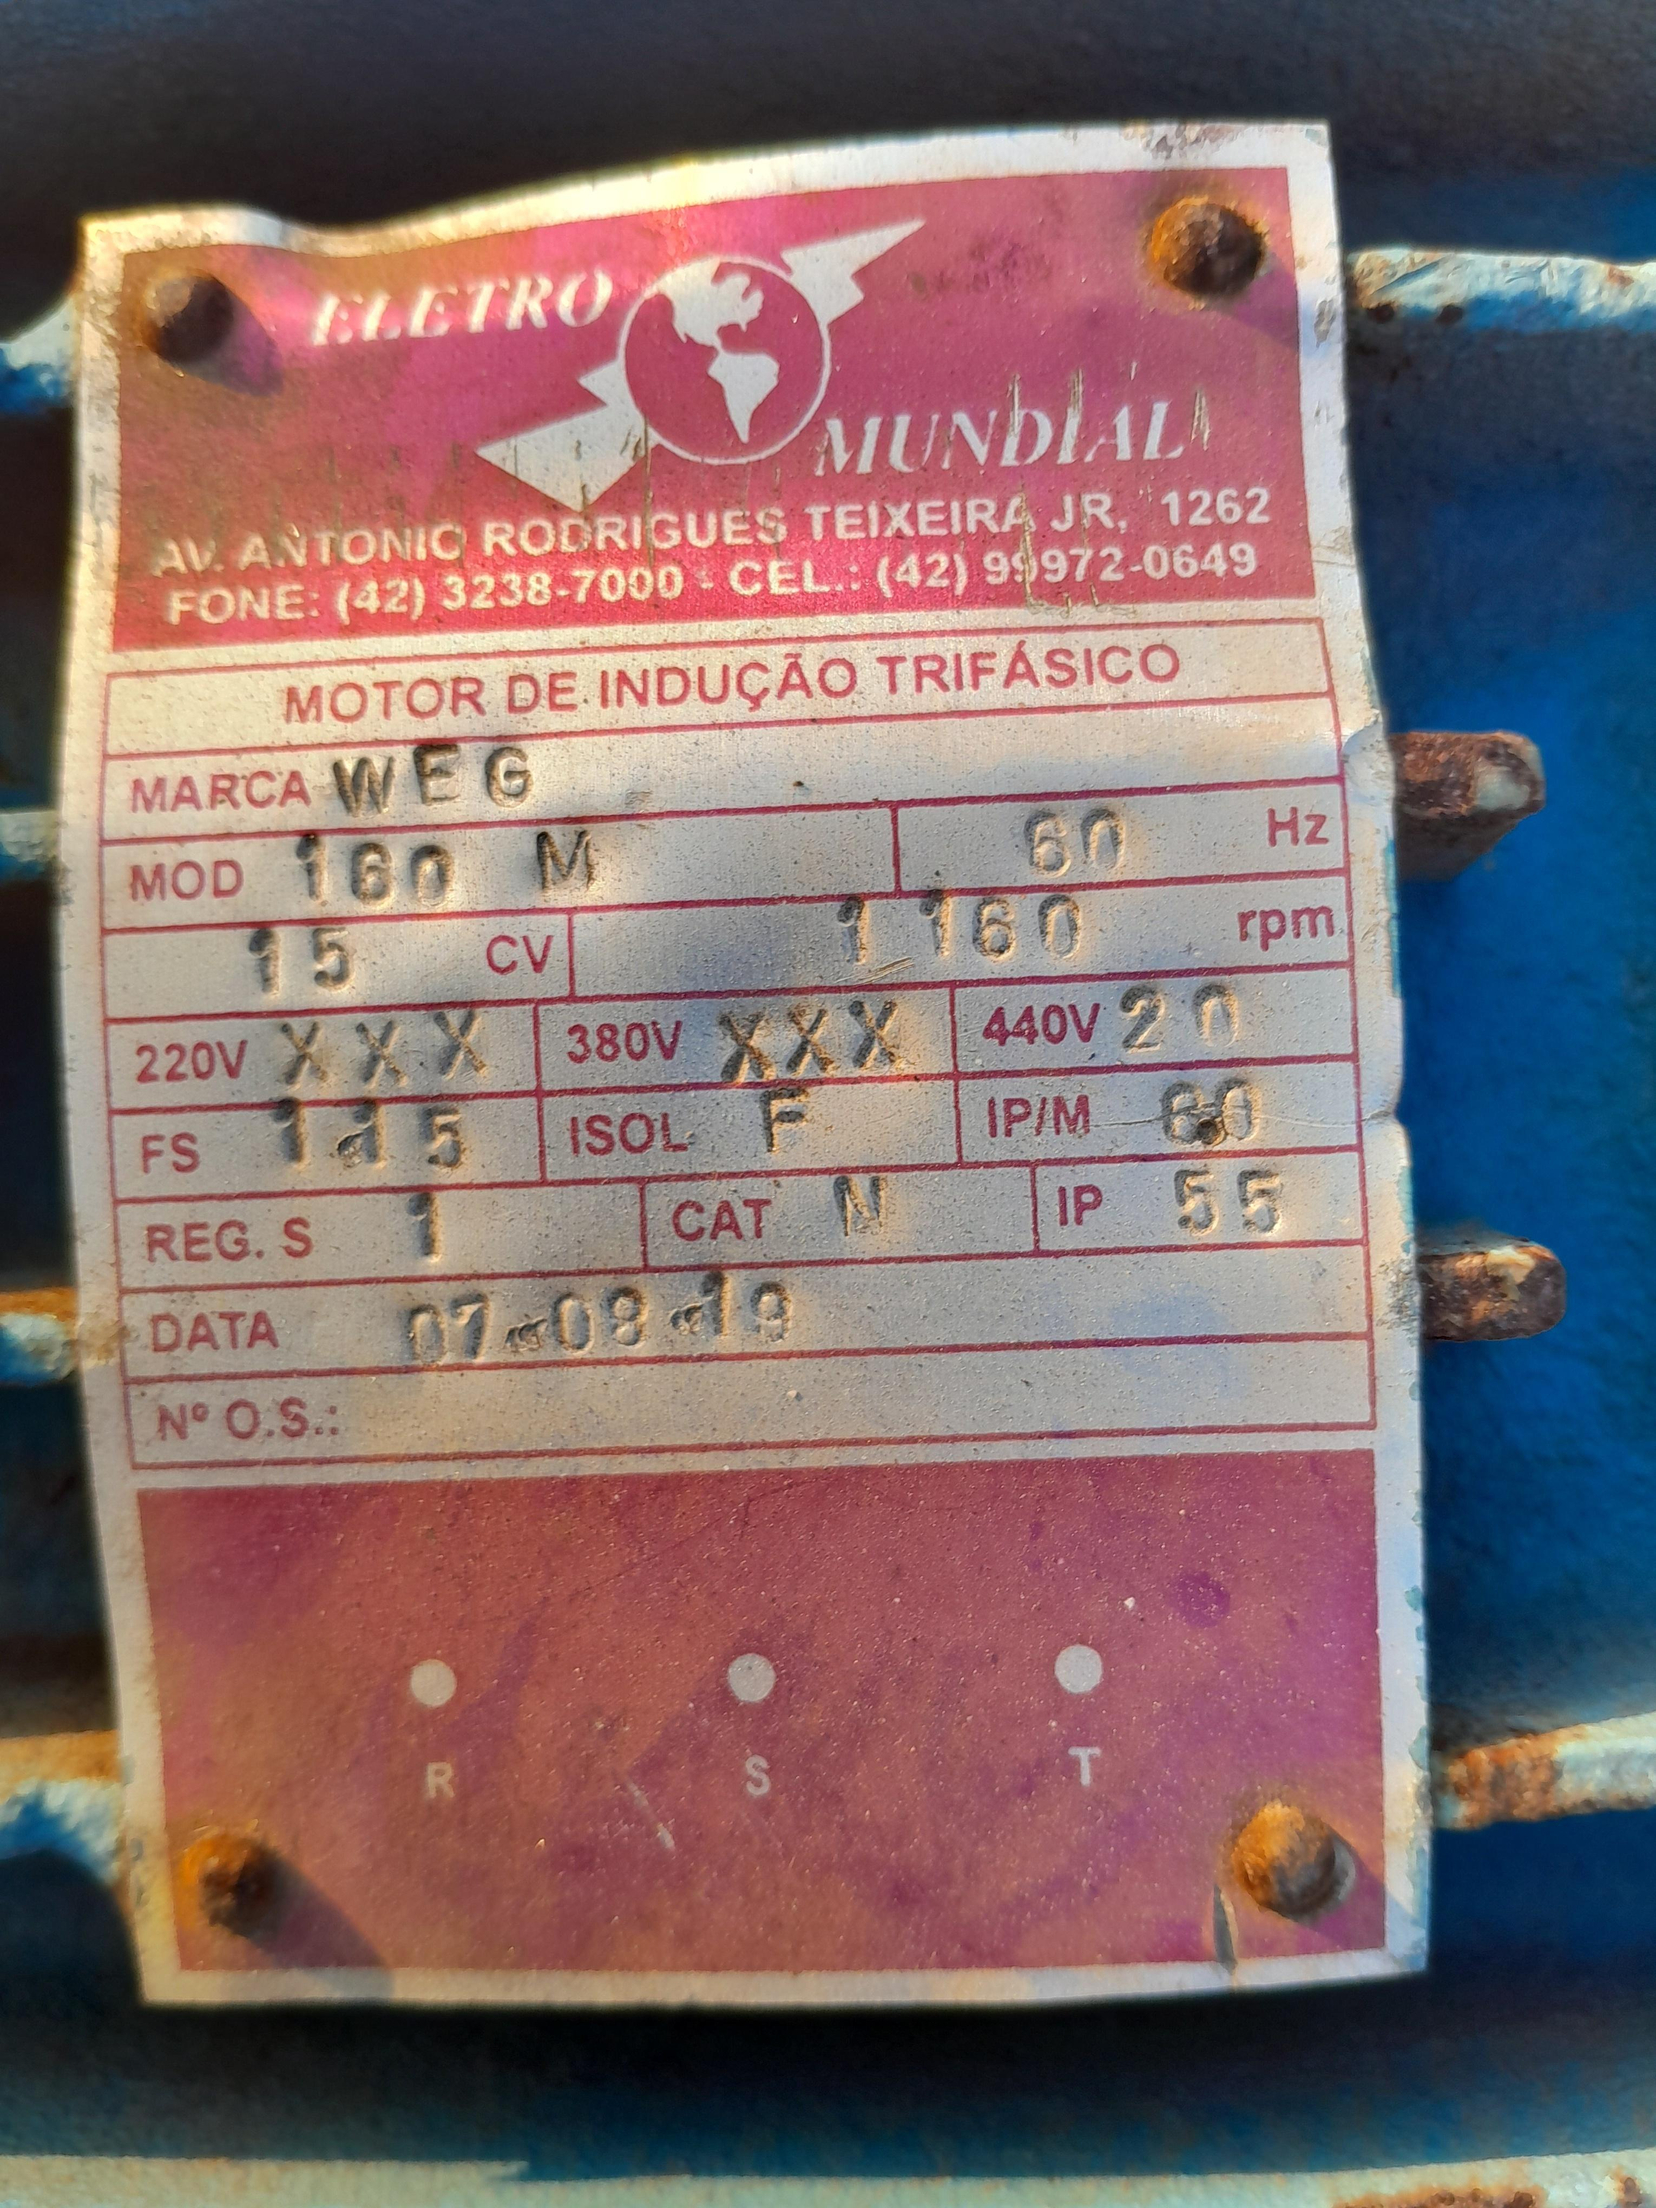 ELETRO
MUNDIAL
AV. ANTONIO RODRIGUES TEIXEIRA JR, 1262
FONE: (42) 3238-7000 - CEL.: (42) 99972-0649
MOTOR DE INDUÇÃO TRIFÁSICO
MARCA WEG
MOD 160 M 60 Hz
15 CV 1160 rpm
220V XXX 380V XXX 440V 20
FS 1.15 ISOL F IP/M 60
REG. S 1 CAT N IP 55
DATA 07-08-19
Nº O.S.:
R S T